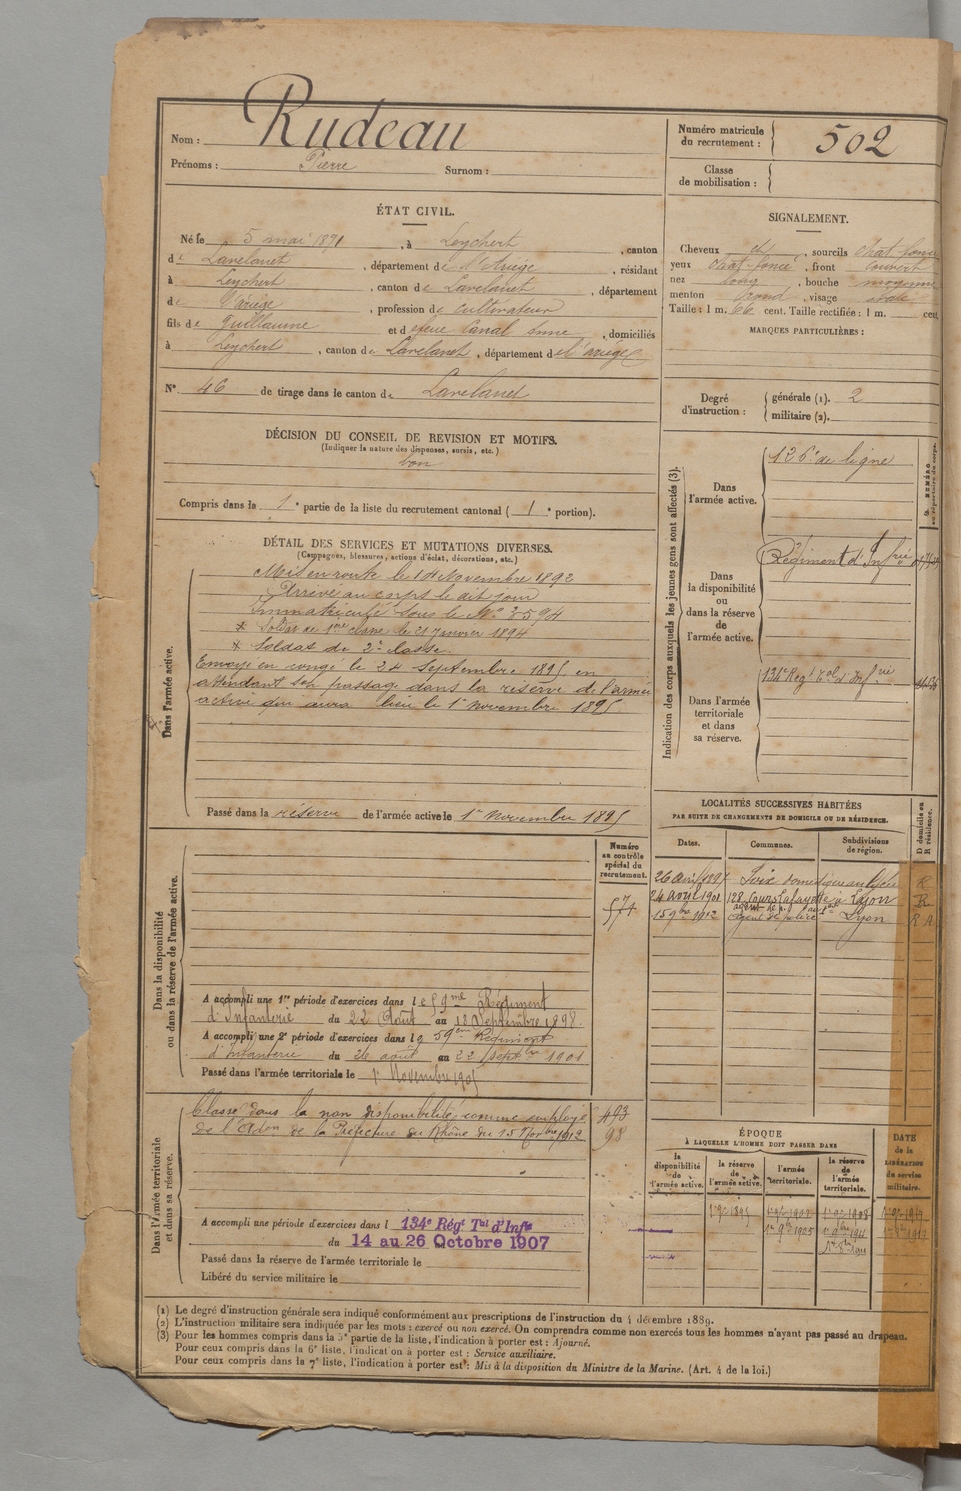 Nom : Rudeau
Prénoms : Pierre Surnom :
Numéro matricule du recrutement : 502
Classe de mobilisation :
ÉTAT CIVIL.
Né le 5 mai 1871, à Leychert, canton
de Lavelanet, département de l'Ariège, résidant
à Leychert, canton de Lavelanet, département
de l'ariège, profession de cultivateur
fils de Guillaume et de feue Canal Anne, domiciliés
à Leychert, canton de Lavelanet, département de l'ariège
N° 46 de tirage dans le canton de Lavelanet
SIGNALEMENT.
Cheveux et, sourcils chat. foncé
yeux chat-foncé, front couvert
nez long, bouche moyenne
menton rond, visage ovale
Taille : 1 m. 66 cent. Taille rectifiée : 1 m. cent.
MARQUES PARTICULIÈRES :
Degré d'instruction : générale (1). 2
militaire (2).
DÉCISION DU CONSEIL DE REVISION ET MOTIFS.
(Indiquer la nature des dispenses, sursis, etc.)
bon
Compris dans la 1e partie de la liste du recrutement cantonal ( 1e portion).
DÉTAIL DES SERVICES ET MUTATIONS DIVERSES.
(Campagnes, blessures, actions d'éclat, décorations, etc.)
Dans l'armée active.
Mis en route le Novembre 1892
Arrivé au corps le dit jour
Immatriculé sous le N° 3594
* Soldat de 1ère classe le 21 janvier 1894
* Soldat de 2e classe.
Envoyé en congé le 24 Septembre 1895 en
attendant son passage dans la réserve de l'armée
active qui aura lieu le 1er Novembre 1895.
Passé dans la réserve de l'armée active le 1er Novembre 1895
Indication des corps auxquels les jeunes gens sont affectés (3).
Dans l'armée active.
126e de ligne
Dans la disponibilité ou dans la réserve de l'armée active.
Régiment d'Infrie
Dans l'armée territoriale et dans sa réserve.
134e Régt Tal d'Infrie
LOCALITÉS SUCCESSIVES HABITÉES
PAR SUITE DE CHANGEMENTS DE DOMICILE OU DE RÉSIDENCE.
Dates. Communes. Subdivisions de région. D domicile ou R résidence.
26 avril 1897 Foix domestique au lycée R
24 avril 1901 128 Cours Lafayette à Lyon R
15 9bre 1912 agent de police Lyon R A
Dans la disponibilité ou dans la réserve de l'armée active.
Numéro au contrôle spécial du recrutement.
571
A accompli une 1re période d'exercices dans le 59me Régiment
d'Infanterie du 22 Août au 18 Septembre 1898.
A accompli une 2e période d'exercices dans le 59em Régiment
d'Infanterie du 26 août au 22 septbre 1901
Passé dans l'armée territoriale le 1er Novembre 1905
Dans l'armée territoriale et dans sa réserve.
Classé dans la non disponibilité comme employé
de l'Adon de la Préfecture du Rhône du 15 Novbre 1912
493
98
A accompli une période d'exercices dans l 134e Régt Tal d'Infie
du 14 au 26 Octobre 1907
Passé dans la réserve de l'armée territoriale le
Libéré du service militaire le
ÉPOQUE
À LAQUELLE L'HOMME DOIT PASSER DANS
la disponibilité de l'armée active. la réserve de l'armée active. l'armée territoriale. la réserve de l'armée territoriale.
DATE de la LIBÉRATION du service militaire.
1er 9bre 1895
1er 9bre 1905
(1) Le degré d'instruction générale sera indiqué conformément aux prescriptions de l'instruction du 4 décembre 1889.
(2) L'instruction militaire sera indiquée par les mots : exercé ou non exercé. On comprendra comme non exercés tous les hommes n'ayant pas passé au drapeau.
(3) Pour les hommes compris dans la 5e partie de la liste, l'indication à porter est : Ajourné.
Pour ceux compris dans la 6e liste, l'indication à porter est : Service auxiliaire.
Pour ceux compris dans la 7e liste, l'indication à porter est : Mis à la disposition du Ministre de la Marine. (Art. 4 de la loi.)